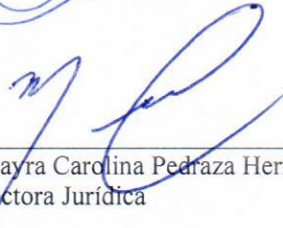 ayra Carolina Pedraza Her
ctora Jurídica